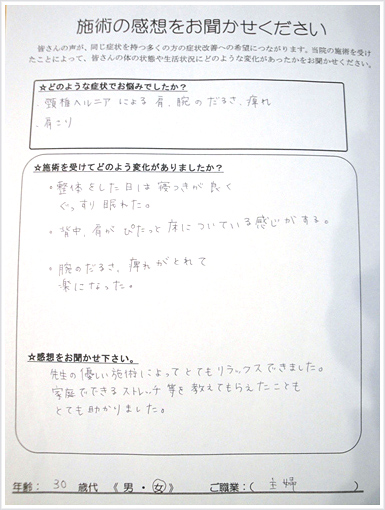 施術の感想をお聞かせください
皆さんの声が、同じ症状を持つ多くの方の症状改善への希望につながります。当院の施術を受け
たことによって、皆さんの体の状態や生活状況にどのような変化があったかをお聞かせください。
☆どのような症状でお悩みでしたか?
・頸椎ヘルニアによる肩、腕のだるさ、痺れ
・肩こり
☆施術を受けてどのよう変化がありましたか?
・整体をした日は寝つきが良く
ぐっすり眠れた。
・背中、肩がぴたっと床についている感じがする。
・腕のだるさ、痺れがとれて
楽になった。
☆感想をお聞かせ下さい。
先生の優しい施術によってとてもリラックスできました。
家庭でできるストレッチ等を教えてもらえたことも
とても助かりました。
年齢: 30 歳代 《 男 ・ 女 》 ご職業:( 主婦 )